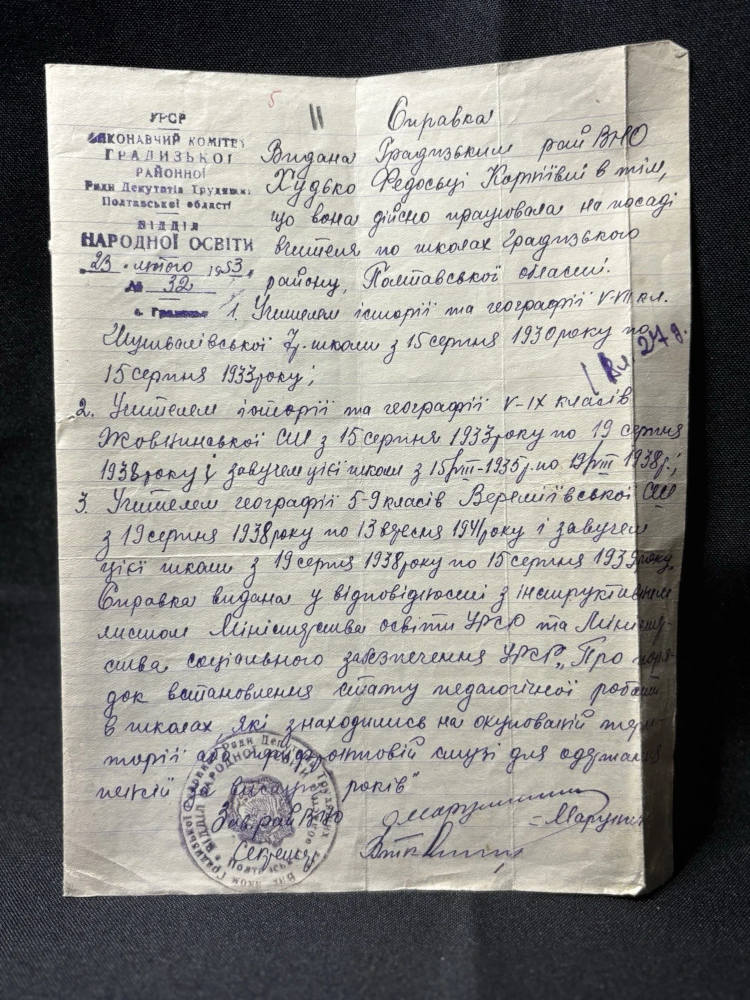 5
II
УРСР
ВИКОНАВЧИЙ КОМІТЕТ
ГРАДИЗЬКОЇ
РАЙОННОЇ
Ради Депутатів Трудящих
Полтавської області
ВІДДІЛ
НАРОДНОЇ ОСВІТИ
23 лютого 1953
№ 32
с. Градизьк
Справка
Видана Градизьким рай ВНО
Худько Федосьці Карпіївні в тім,
що вона дійсно працювала на посаді
вчителя по школах Градизького
району, Полтавської області.
1. Учителем історії та географії V-VII кл.
7р. школи з 15 серпня 1930 року по
15 серпня 1933 року;
Вх. 27 д.
2. Учителем історії та географії V-IX класів
Жовнинської СШ з 15 серпня 1933 року по 19 серпня
1938 року і завучем цієї школи з 15/VIII-1935 р. по 19/VIII 1938 р.;
3. Учителем географії 5-9 класів Вереміївської СШ
з 19 серпня 1938 року по 13 вересня 1941 року і завучем
цієї школи з 19 серпня 1938 року по 15 серпня 1939 року.
Справка видана у відповідності з інструктивним
листом Міністерства освіти УРСР та Мініст-
ства соціального забезпечення УРСР „Про поря-
док встановлення стажу педагогічної роботи
в школах, які знаходились на окупованій тери-
торії або прифронтовій смузі для одержання
пенсій за вислугу років"
Зав рай ВНО
Секретар